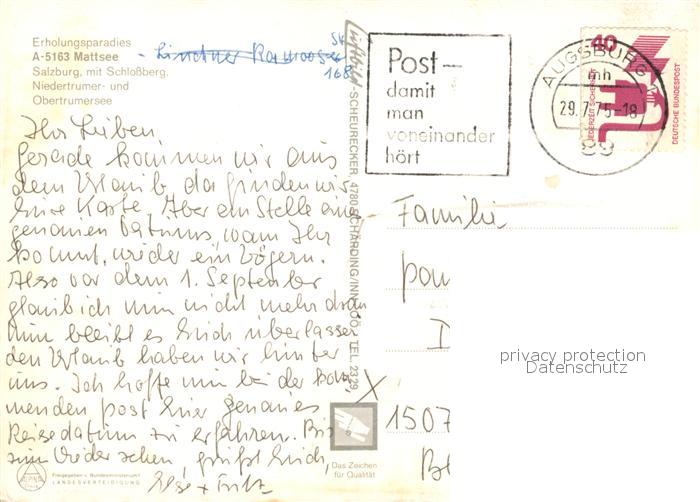 Erholungsparadies
A-5163 Mattsee
Salzburg, mit Schloßberg.
Niedertrumer- und
Obertrumersee
168
Ihr Lieben,
Gerade kommen wir aus
dem Urlaub, da finden wir
Eure Karte. Aber an Stelle eines
genauen Datums, wann Ihr
kommt, wieder ein Zögern.
Also vor dem 1. September
glaub ich nun nicht mehr dran
Nun bleibt es Euch überlassen
den Urlaub haben wir hinter
uns. Ich hoffe nun bei der kom-
menden Post Euer genaues
Reisedatum zu erfahren. Bis
zum Wiedersehen, grüßt Euch,
Else + Fritz
Freigegeben v. Bundesministerium f.
LANDESVERTEIDIGUNG
Luftbild-SCHEURECKER, 4780 SCHÄRDING/INN, OÖ. TEL. 2329
Das Zeichen
für Qualität
Post-
damit
man
voneinander
hört
AUGSBURG 1
mh
29.7.75-18
89
40
JEDERZEIT SICHERHEIT
DEUTSCHE BUNDESPOST
Familie
1507
privacy protection
Datenschutz